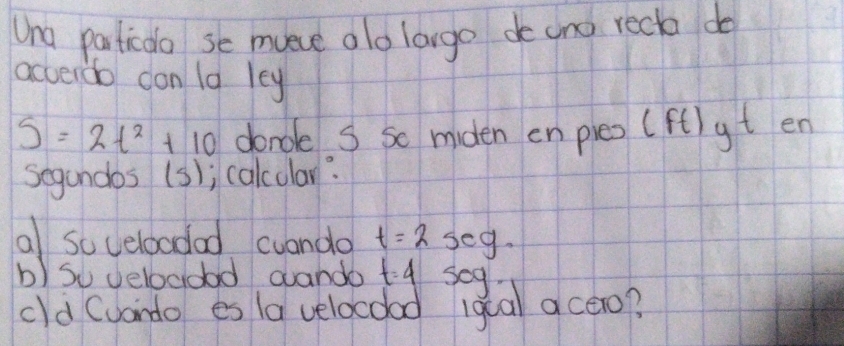 Una particula se mueve a lo largo de una recta de
acuerdo con la ley
S = 2t² + 10 donde S se miden en pies (ft) y t en
segundos (s); calcular:
a) su velocidad cuando t=2 seg.
b) Su velocidad cuando t=4 seg.
c) ¿Cuando es la velocidad igual a cero?